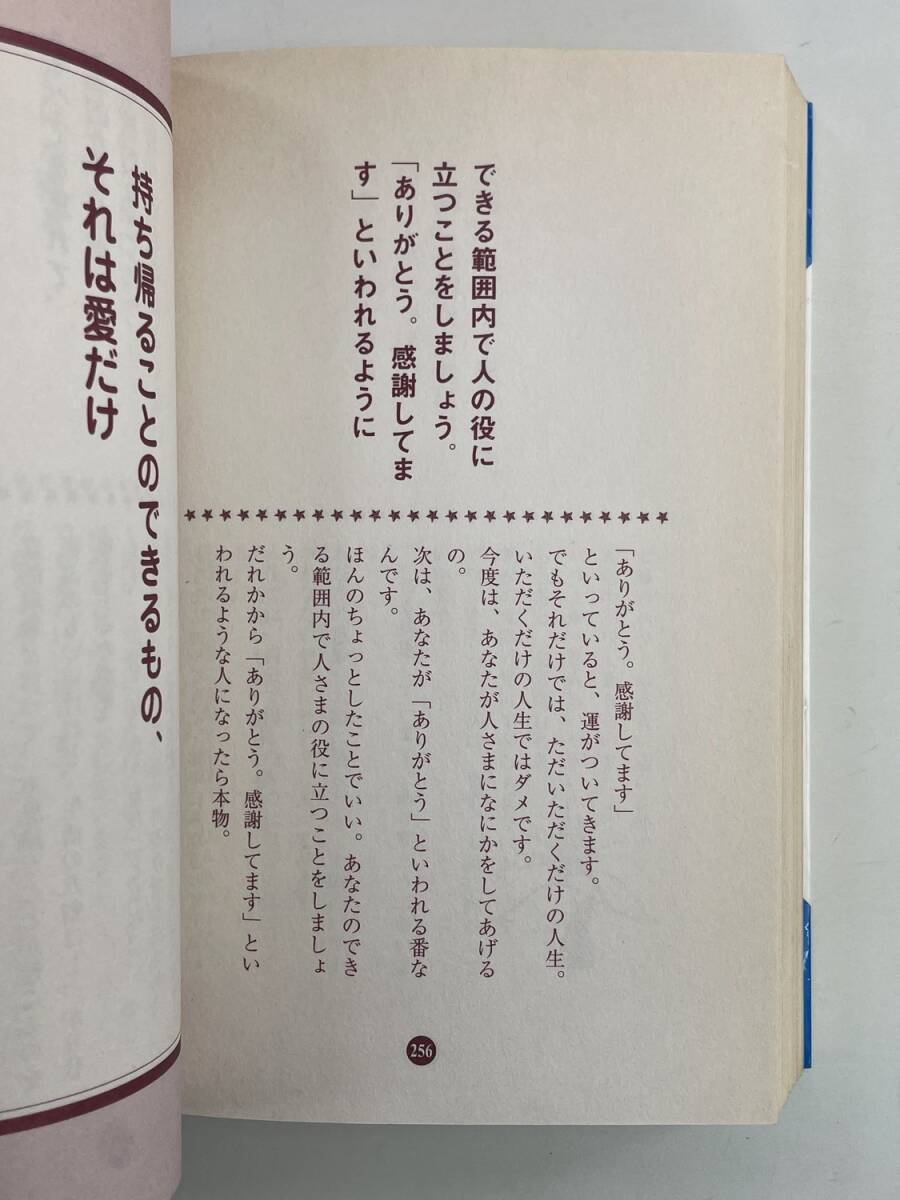 できる範囲内で人の役に
立つことをしましょう。
「ありがとう。感謝してま
す」といわれるように
「ありがとう。感謝してます」
といっていると、運がついてきます。
でもそれだけでは、ただいただくだけの人生。
いただくだけの人生ではダメです。
今度は、あなたが人さまになにかをしてあげる
の。
次は、あなたが「ありがとう」といわれる番な
んです。
ほんのちょっとしたことでいい。あなたのでき
る範囲内で人さまの役に立つことをしましょ
う。
だれかから「ありがとう。感謝してます」とい
われるような人になったら本物。
256
持ち帰ることのできるもの、
それは愛だけ